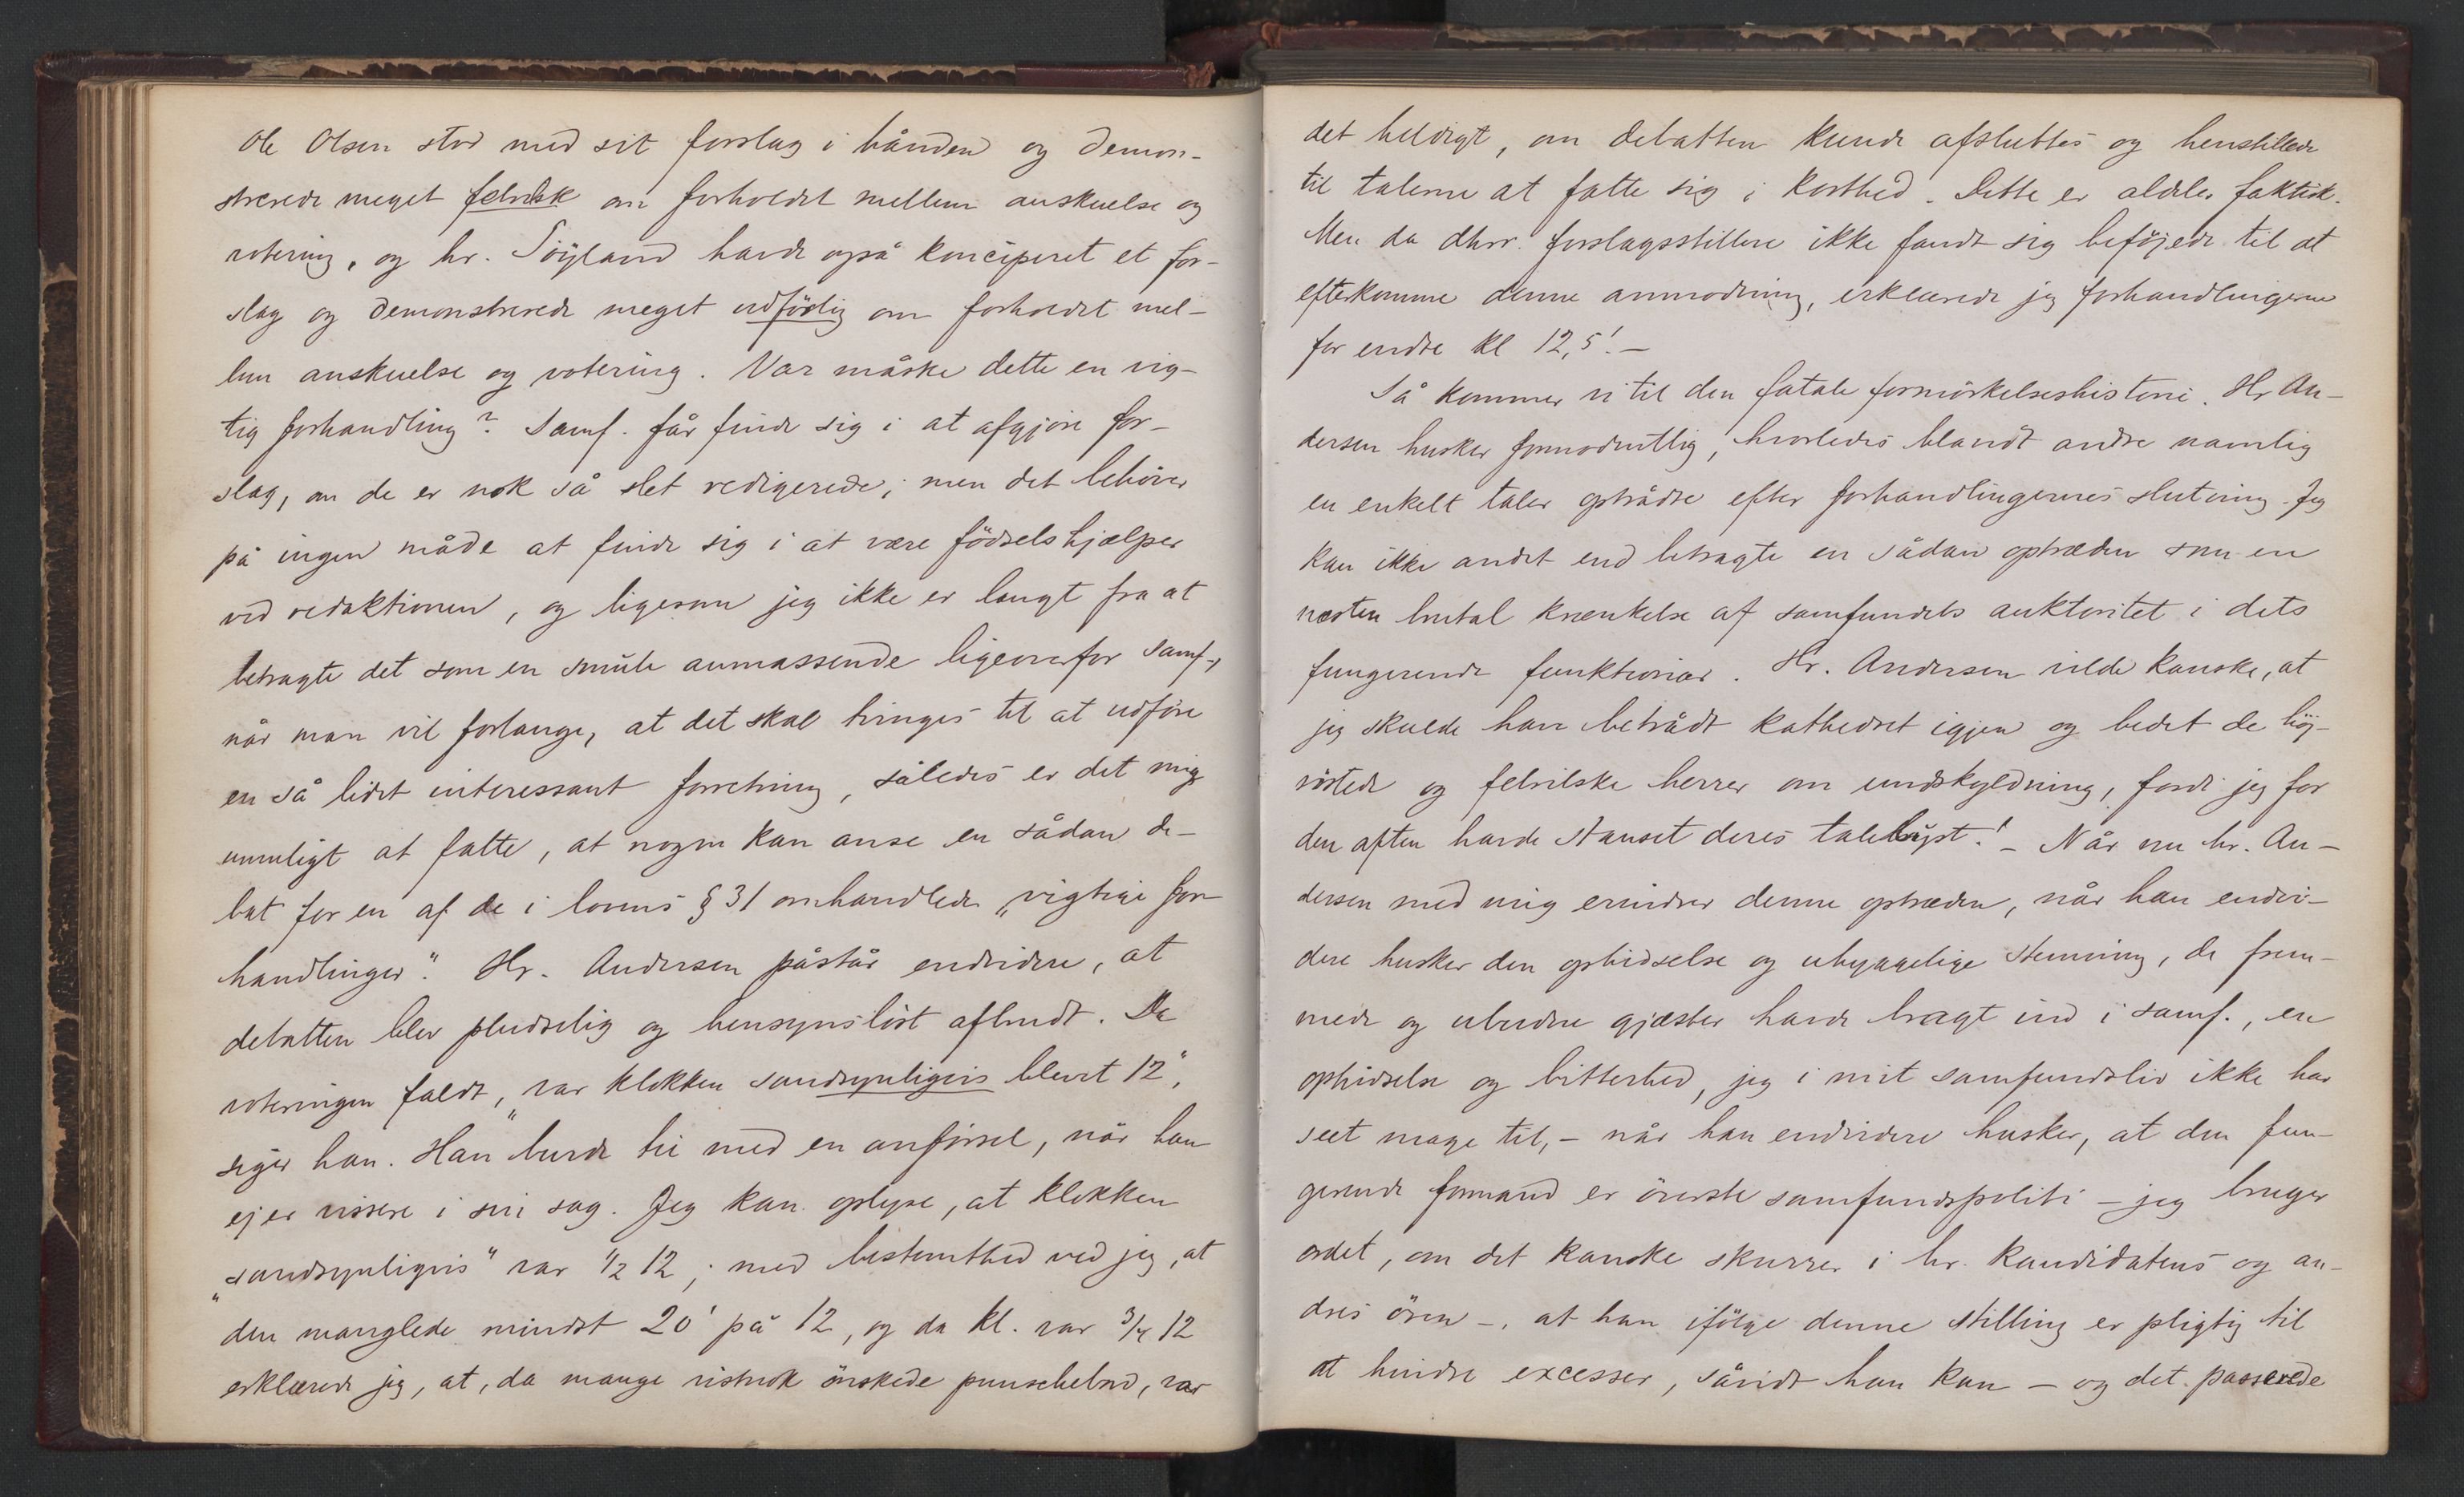 Ole Olsen stod med sit forslag i hånden og demon-
strerede meget febrilsk om forholdet mellem anskuelse og
votering, og hr. Söyland havde også konciperet et for-
slag og demonstrerede meget udförlig om forholdet mel-
lem anskuelse og votering. Var måske dette en vig-
tig forhandling? Samf. får finde sig i at afgjöre for-
slag, om de er nok så slet redigerede; men det behöver
på ingen måde at finde sig i at være födselshjælper
ved redaktionen, og ligesom jeg ikke er langt fra at
betragte det som en smule anmassende ligeoverfor samf.,
når man vil forlange, at det skal tvinges til at udföre
en så lidet interessant forretning, således er det mig
umuligt at fatte, at nogen kan anse en sådan de-
bat for en af de i lovens § 31 omhandlede „vigtige for-
handlinger“. Hr. Andersen påstår endvidere, at
debatten blev pludselig og hensynslöst afbrudt. „Da
voteringen faldt, var klokken sandsynligvis blevet 12“,
siger han. Han burde tie med en anförsel, når han
ej er vissere i sin sag. Jeg kan oplyse, at klokken
„sandsynligvis“ var 1/2 12; med bestemthed ved jeg, at
den manglede mindst 20' på 12, og da kl. var 3/4 12
erklærede jeg, at, da mange vistnok önskede punschebord, var
det heldigt, om debatten kunde afsluttes og henstillede
til talerne at fatte sig i korthed. Dette er aldeles faktisk.
Men da dhrr. forslagsstillere ikke fandt sig beföjede til at
efterkomme denne anmodning, erklærede jeg forhandlingerne
for endte kl 12,5'. —
Så kommer vi til den fatale formörkelseshistorie. Hr An-
dersen husker formodentlig, hvorledes blandt andre navnlig
en enkelt taler optrådte efter forhandlingernes slutning. Jeg
kan ikke andet end betragte en sådan optræden som en
næsten brutal krænkelse af samfundets auktoritet i dets
fungerende funktionær. Hr. Andersen vilde kanske, at
jeg skulde have betrådt kathedret igjen og bedet de höj-
röstede og febrilske herrer om undskyldning, fordi jeg for
den aften havde standset deres talelyst! — Når nu hr. An-
dersen med mig erindrer denne optræden, når han endvi-
dere husker den ophidselse og uhyggelige stemning, de frem-
mede og ubudne gjæster havde bragt ind i samf., en
ophidselse og bitterhed, jeg i mit samfundsliv ikke har
seet mage til, — når han endvidere husker, at den fun-
gerende formand er överste samfundspoliti — jeg bruger
ordet, om det kanske skurrer i hr. kandidatens og an-
dres ören —, at han ifölge denne stilling er pligtig til
at hindre excesser, såvidt han kan — og det passerede